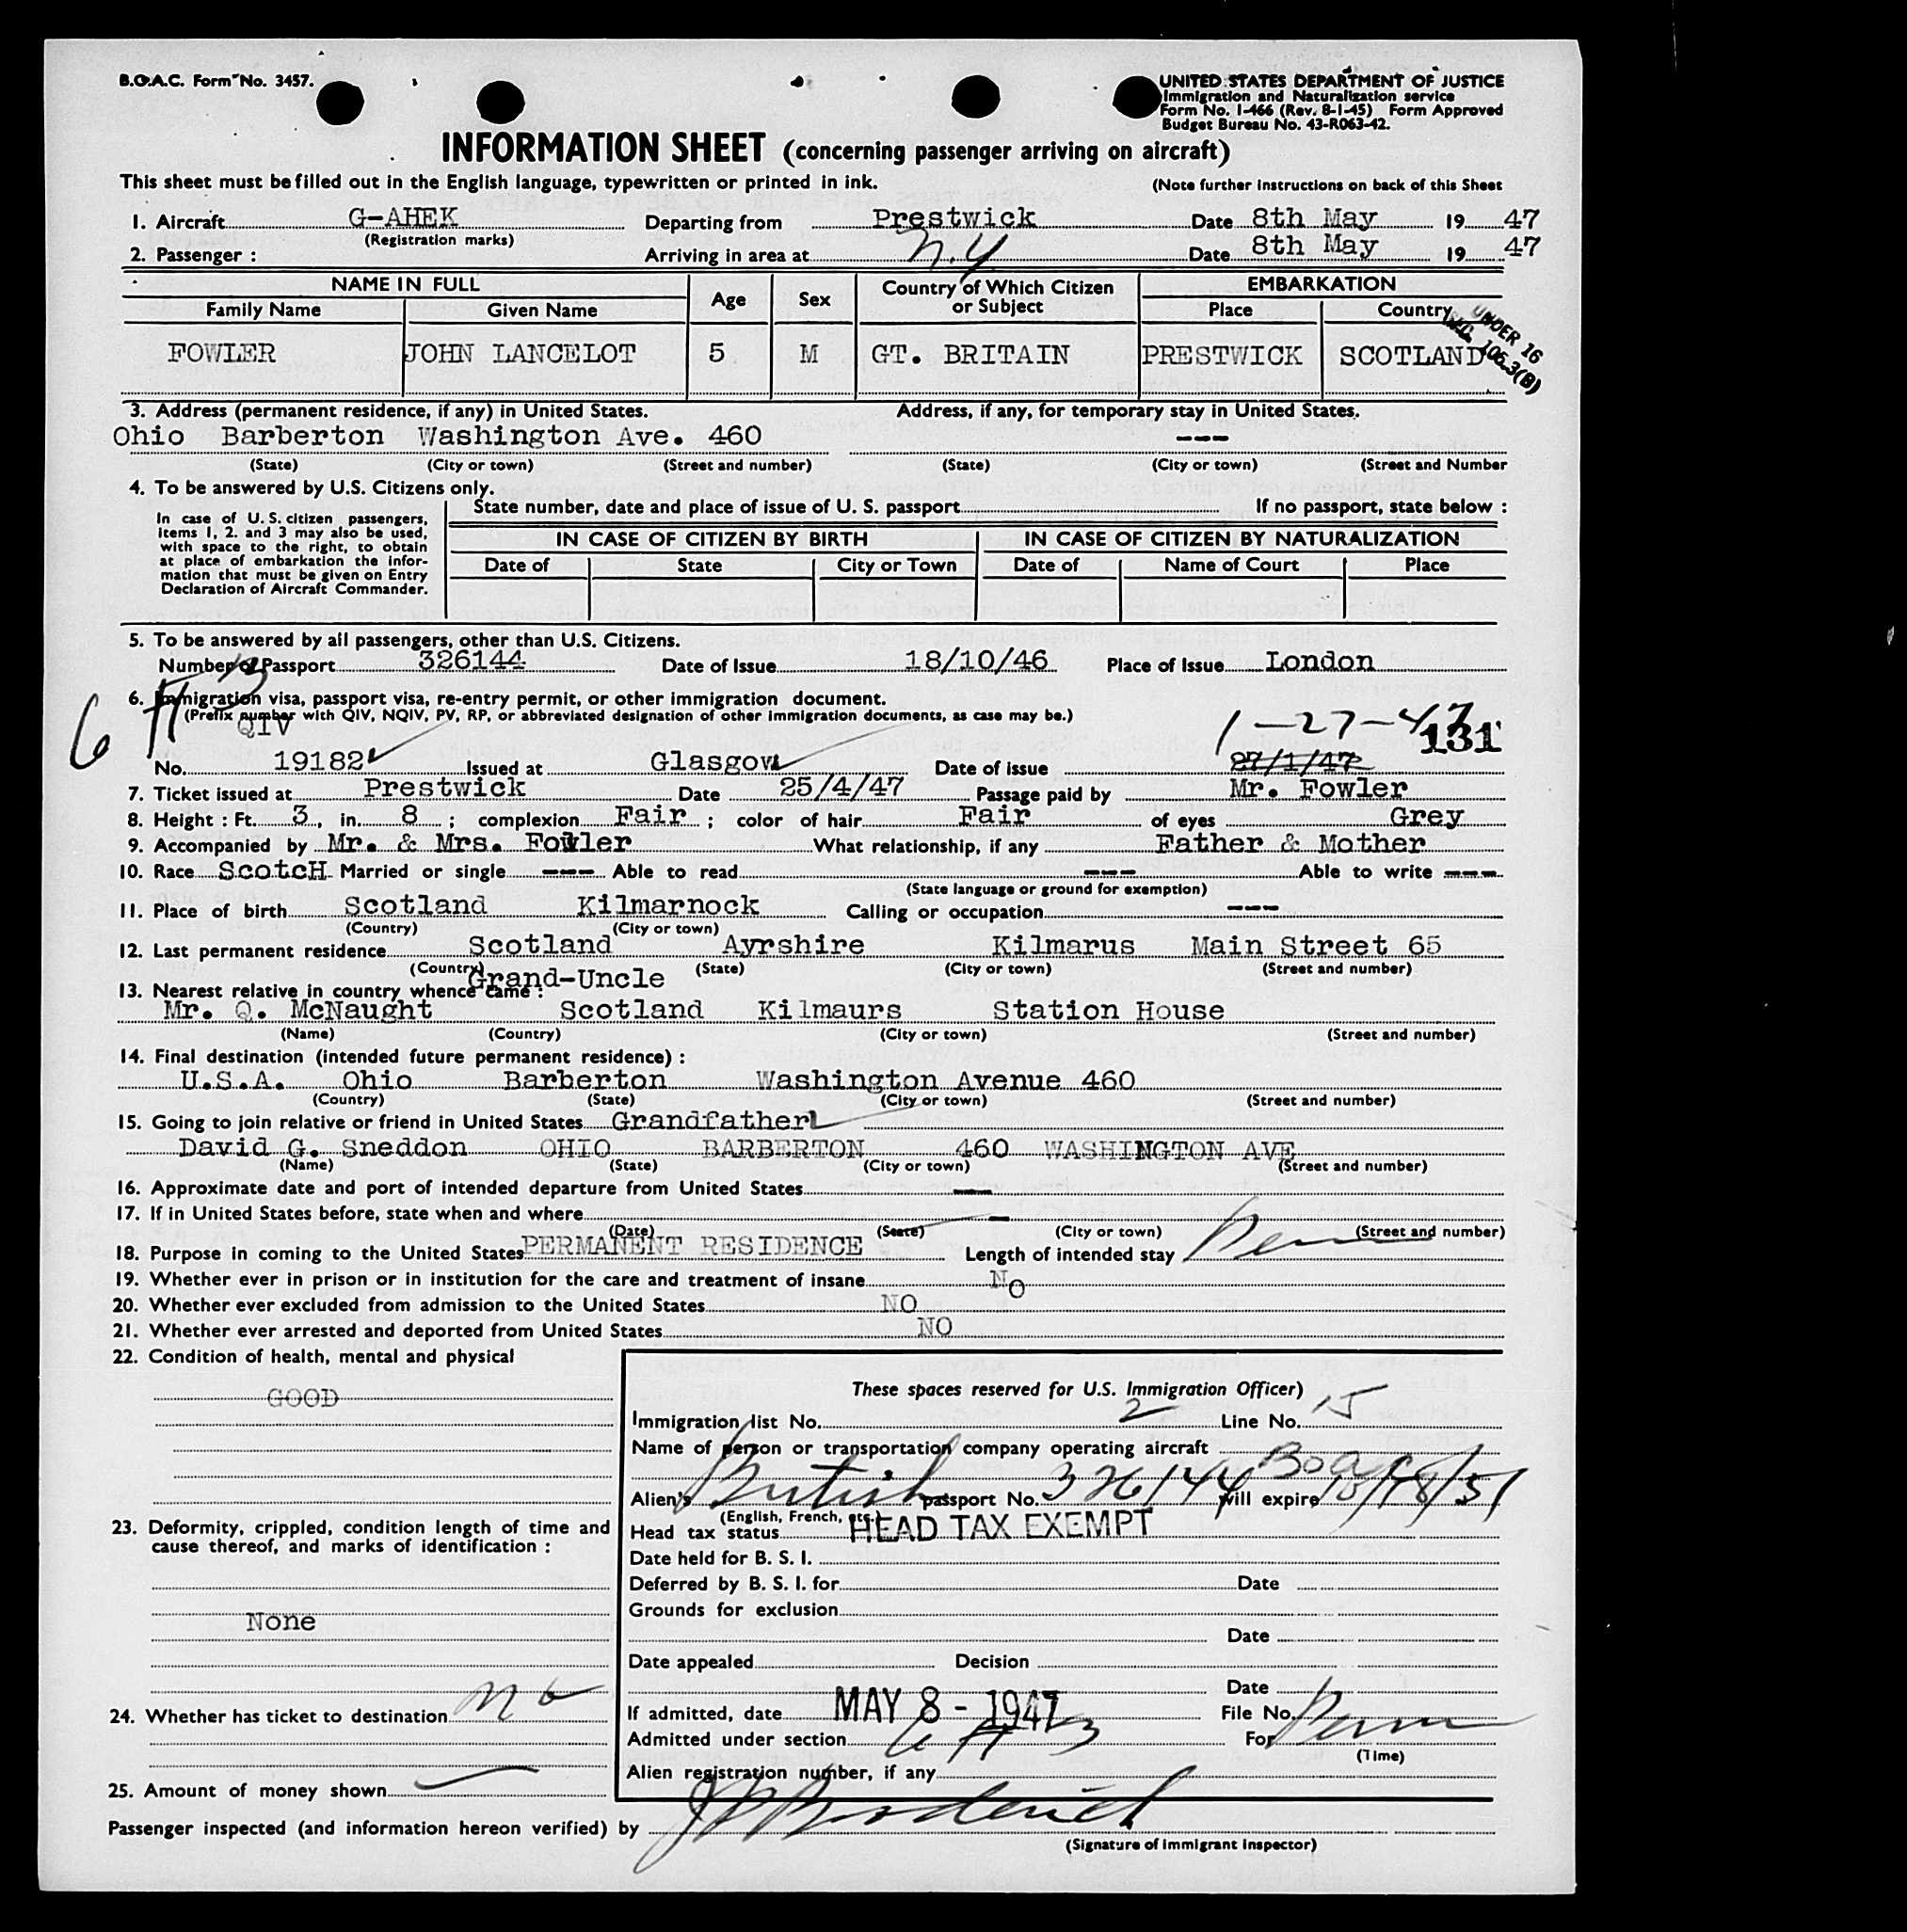 B.O.A.C. Form No. 3457.
UNITED STATES DEPARTMENT OF JUSTICE
Immigration and Naturalization service
Form No. I-466 (Rev. 8-1-45) Form Approved
Budget Bureau No. 43-R063-42.
INFORMATION SHEET (concerning passenger arriving on aircraft)
This sheet must be filled out in the English language, typewritten or printed in ink. (Note further instructions on back of this Sheet
1. Aircraft G-AHEK Departing from Prestwick Date 8th May 19 47
(Registration marks)
2. Passenger : Arriving in area at N.Y. Date 8th May 19 47
NAME IN FULL Age Sex Country of Which Citizen or Subject EMBARKATION
Family Name Given Name Place Country
UNDER 16
106.3(B)
FOWLER JOHN LANCELOT 5 M GT. BRITAIN PRESTWICK SCOTLAND
3. Address (permanent residence, if any) in United States. Address, if any, for temporary stay in United States.
Ohio Barberton Washington Ave. 460 ---
(State) (City or town) (Street and number) (State) (City or town) (Street and Number
4. To be answered by U.S. Citizens only.
State number, date and place of issue of U. S. passport If no passport, state below :
In case of U. S. citizen passengers,
items 1, 2. and 3 may also be used,
with space to the right, to obtain
at place of embarkation the infor-
mation that must be given on Entry
Declaration of Aircraft Commander.
IN CASE OF CITIZEN BY BIRTH IN CASE OF CITIZEN BY NATURALIZATION
Date of State City or Town Date of Name of Court Place
5. To be answered by all passengers, other than U.S. Citizens.
Number of Passport 326144 Date of Issue 18/10/46 Place of Issue London
6. Immigration visa, passport visa, re-entry permit, or other immigration document.
(Prefix number with QIV, NQIV, PV, RP, or abbreviated designation of other immigration documents, as case may be.)
QIV 1-27-47 131
No. 19182 Issued at Glasgow Date of issue 27/1/47
7. Ticket issued at Prestwick Date 25/4/47 Passage paid by Mr. Fowler
8. Height : Ft. 3, in. 8 ; complexion Fair ; color of hair Fair of eyes Grey
9. Accompanied by Mr. & Mrs. Fowler What relationship, if any Father & Mother
10. Race ScotcH Married or single --- Able to read --- Able to write ---
(State language or ground for exemption)
11. Place of birth Scotland Kilmarnock Calling or occupation ---
(Country) (City or town)
12. Last permanent residence Scotland Ayrshire Kilmarus Main Street 65
(Country) (State) (City or town) (Street and number)
13. Nearest relative in country whence came : Grand-Uncle
Mr. Q. McNaught Scotland Kilmaurs Station House
(Name) (Country) (City or town) (Street and number)
14. Final destination (intended future permanent residence) :
U.S.A. Ohio Barberton Washington Avenue 460
(Country) (State) (City or town) (Street and number)
15. Going to join relative or friend in United States Grandfather
David G. Sneddon OHIO BARBERTON 460 WASHINGTON AVE
(Name) (State) (City or town) (Street and number)
16. Approximate date and port of intended departure from United States —
17. If in United States before, state when and where —
(Date) (State) (City or town) (Street and number)
18. Purpose in coming to the United States PERMANENT RESIDENCE Length of intended stay Perm
19. Whether ever in prison or in institution for the care and treatment of insane NO
20. Whether ever excluded from admission to the United States NO
21. Whether ever arrested and deported from United States NO
22. Condition of health, mental and physical
GOOD
23. Deformity, crippled, condition length of time and
cause thereof, and marks of identification :
None
24. Whether has ticket to destination no
25. Amount of money shown —
These spaces reserved for U.S. Immigration Officer)
Immigration list No. 2 Line No. 15
Name of person or transportation company operating aircraft
BOAC
Alien's British passport No. 326144 will expire 10/18/51
(English, French, etc.)
Head tax status HEAD TAX EXEMPT
Date held for B. S. I.
Deferred by B. S. I. for Date
Grounds for exclusion
Date
Date appealed Decision
Date
If admitted, date MAY 8 - 1947 File No.
Admitted under section 6 A 3 For Perm
(Time)
Alien registration number, if any
Passenger inspected (and information hereon verified) by
(Signature of Immigrant Inspector)